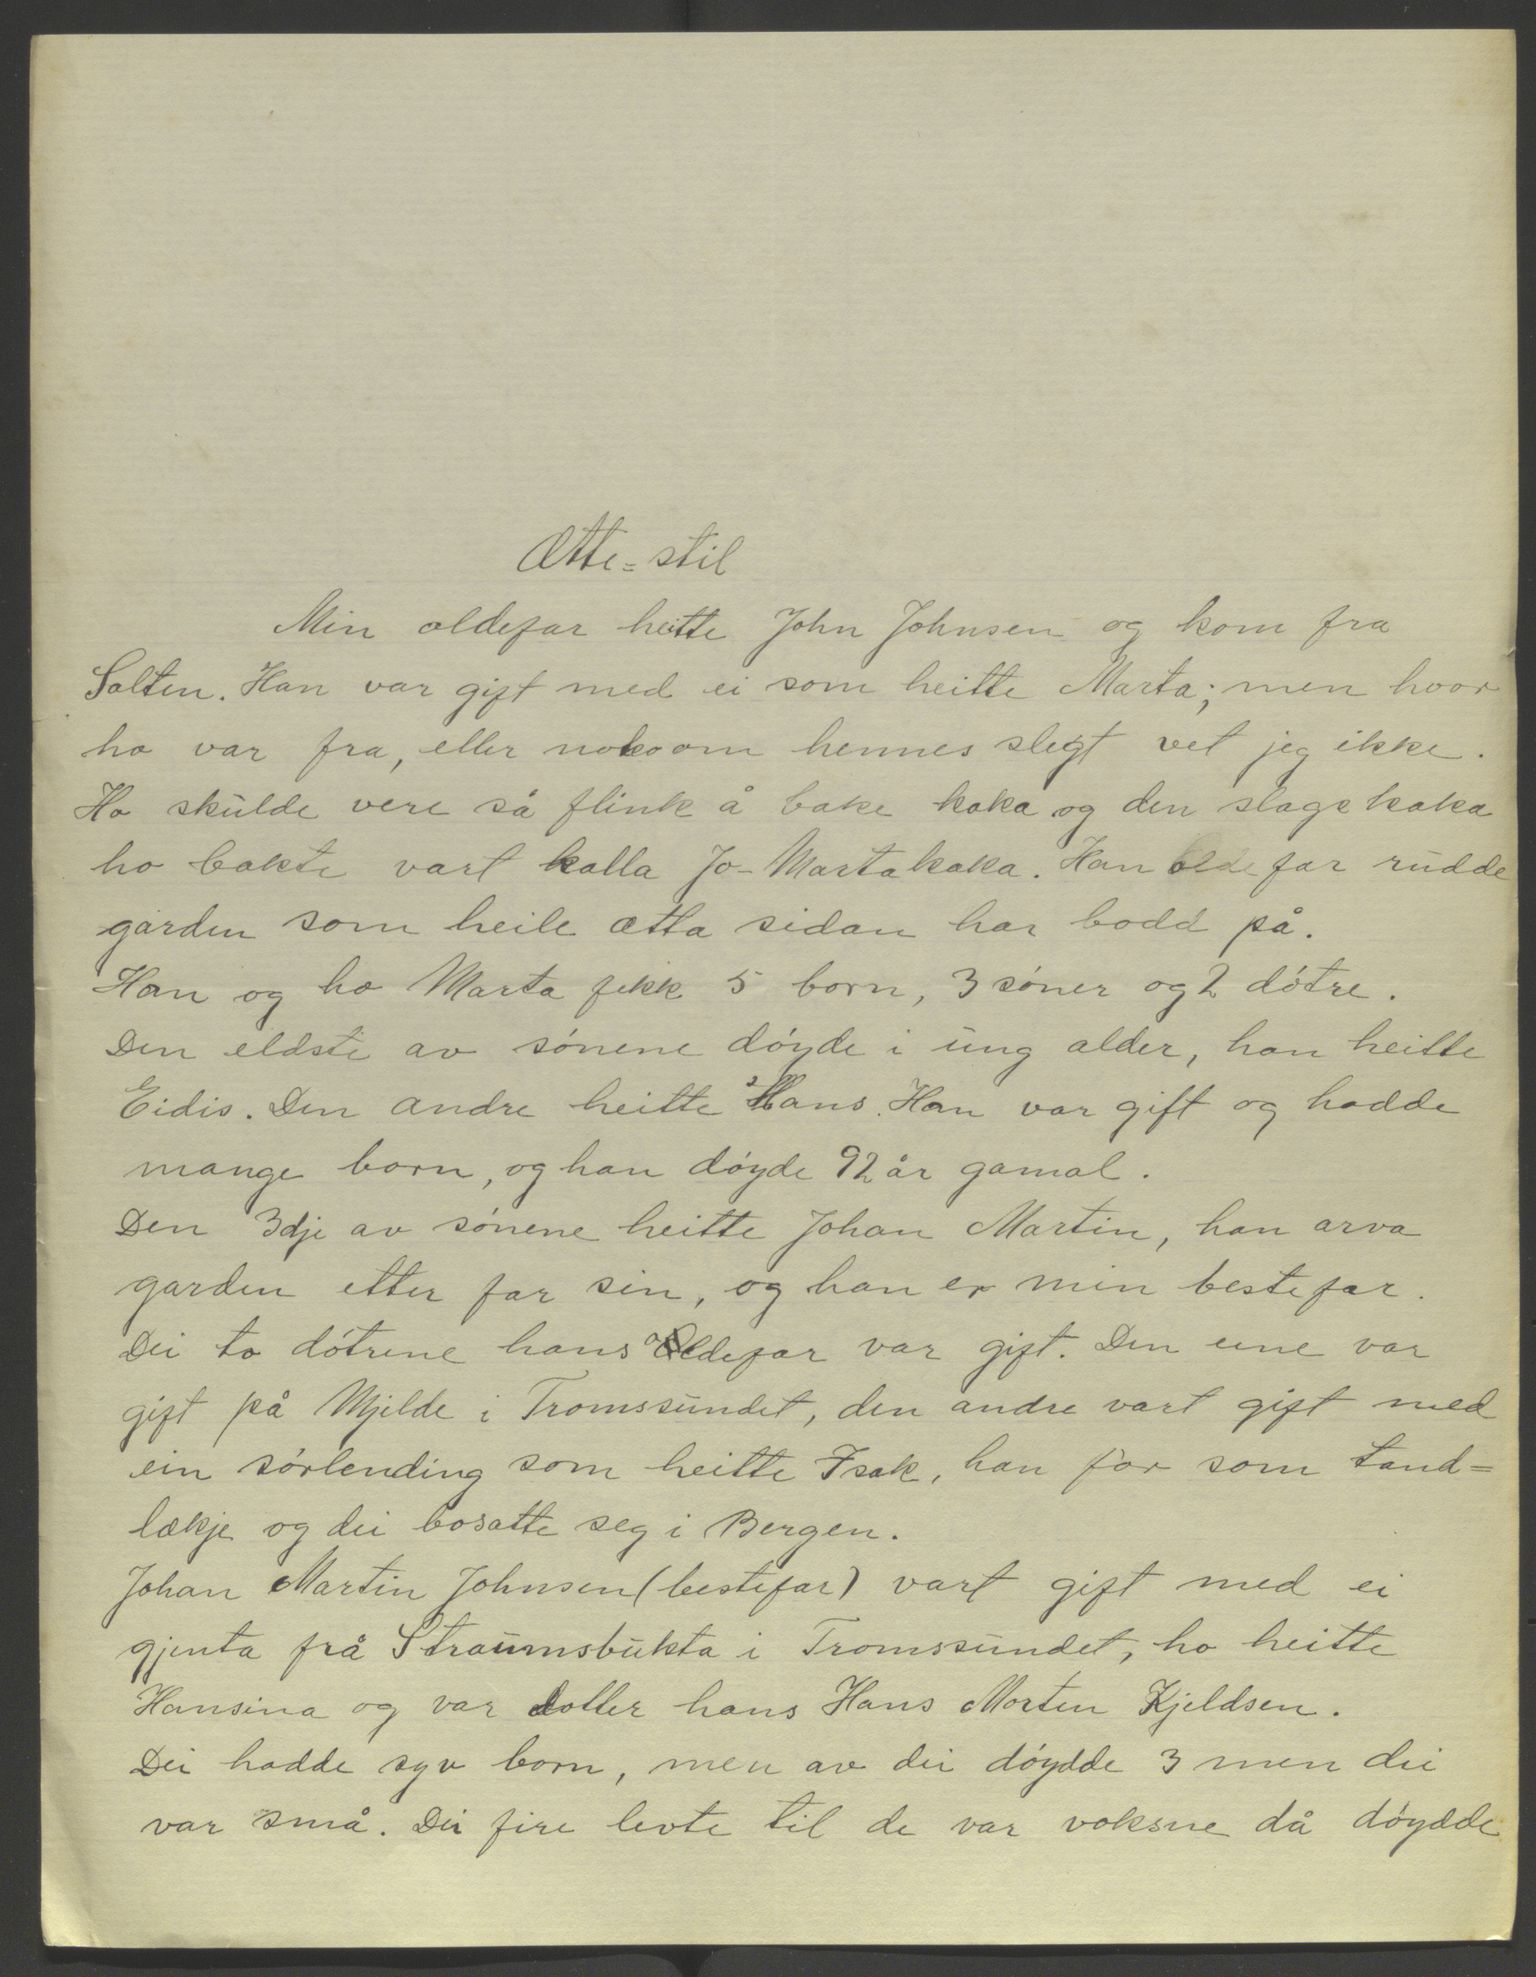 Ætte-stil
Min oldefar heitte John Johnsen og kom fra
Salten. Han var gift med ei som heitte Marta; men hvor
ho var fra, eller noko om hennes slegt vet jeg ikke.
Ho skulde vere så flink å bake kaka og den slags kaka
ho bakte vart kalla Jo-Martakaka. Han oldefar rudde
garden som heile ætta sidan har bodd på.
Han og ho Marta fekk 5 born, 3 søner og 2 døtre.
Den eldste av sønene døyde i ung alder, han heitte
Eidis. Den andre heitte Hans. Han var gift og hadde
mange born, og han døyde 92 år gamal.
Den 3dje av sønene heitte Johan Martin, han arva
garden etter far sin, og han er min bestefar.
Dei to døtrene hans oldefar var gift. Den eine var
gift på Mjelde i Tromssundet, den andre vart gift med
ein sørlending som heitte Isak, han for som tand-
lækje og dei bosatte seg i Bergen.
Johan Martin Johnsen (bestefar) vart gift med ei
gjenta frå Straumsbukta i Tromssundet, ho heitte
Hansina og var dotter hans Hans Morten Kjeldsen.
Dei hadde syv born, men av dei døydde 3 men dei
var små. Dei fire levte til de var voksne då døydde